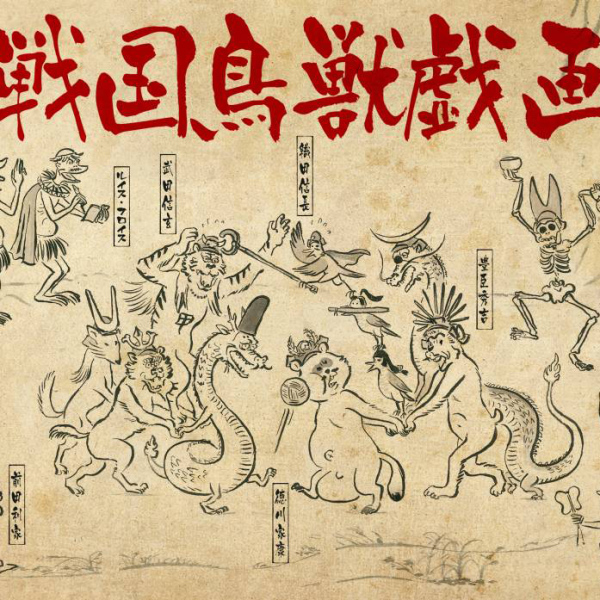 戦国鳥獣戯画
織田信長
武田信玄
ルイス・フロイス
豊臣秀吉
徳川家康
前田利家